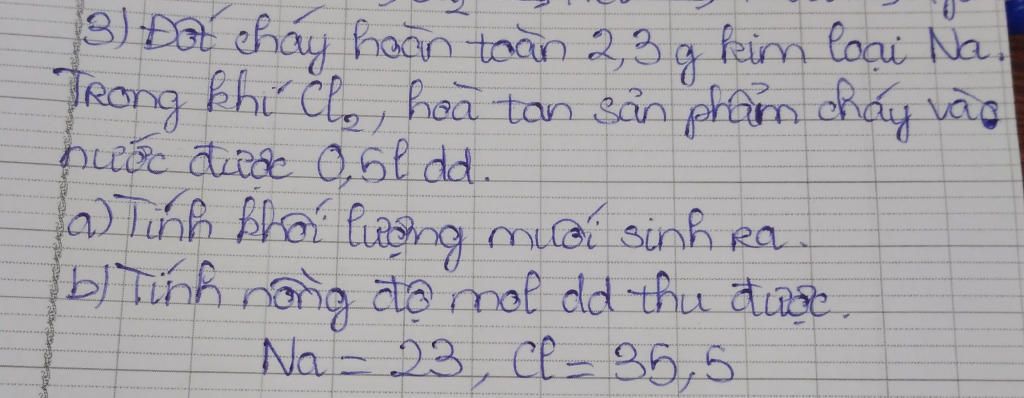 3) Đốt cháy hoàn toàn 2,3 g kim loại Na.
Trong khí Cl₂, hoà tan sản phẩm cháy vào
nước được 0,5l dd.
a) Tính khối lượng muối sinh ra.
b) Tính nồng độ mol dd thu được.
Na = 23, Cl = 35,5